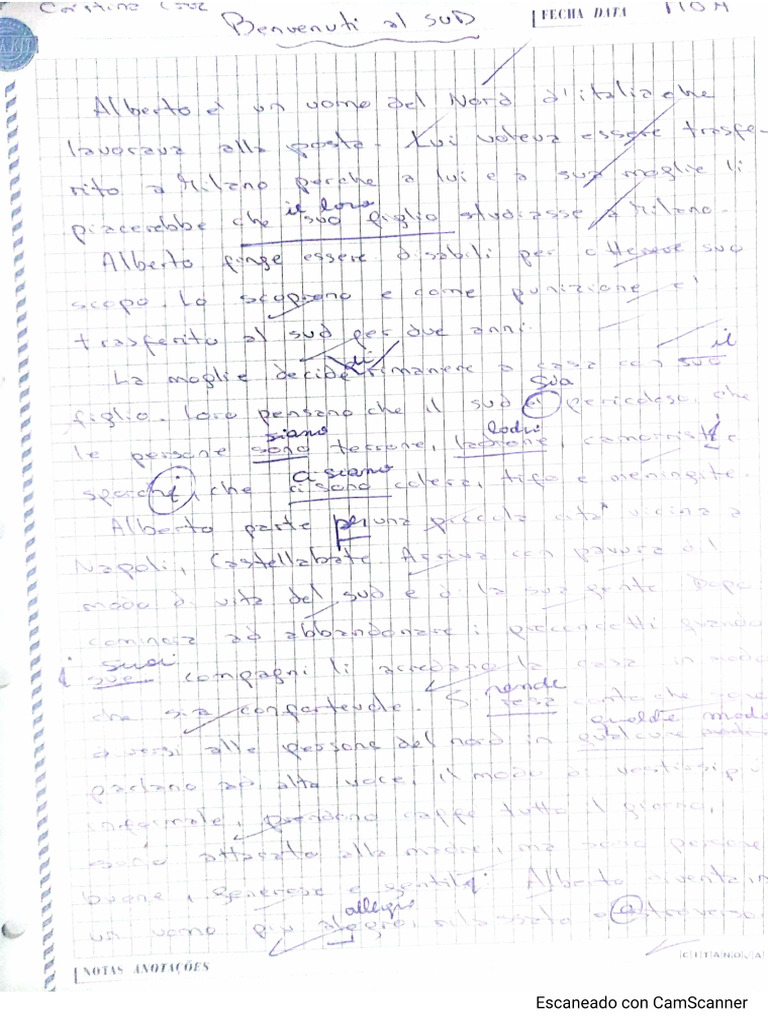 Cristina
Benvenuti al suD
FECHA DATA
Alberto è un uomo del Nord d'italia che
lavorava alla posta. Lui voleva essere trasfe-
rito a Milano perche a lui e a sua moglie li
il loro
piacerebbe che suo figlio studiasse a Milano.
Alberto finge essere disabili per ottenere suo
scopo. Lo scoprono e come punizione e'
trasferito al sud per due anni.
di
il
La moglie decide rimanere a casa con suo
sia
figlio. Loro pensano che il sud è pericoloso, che
siano
ladri
i
le persone sono terrone, ladrone, camorriste
ci siano
sporchi, che ci sono colera, tifo e meningite.
Alberto parte per una piccola cità vicina a
Napoli, Castellabate. Arriva con paura del
modo di vita del sud e di la sua gente. Dopo
comincia ad abbandonare i preconcetti quando
i suoi
sue compagni li arredano la casa in modo
che sia confortevole.
rende
Si conto che sono
qualche modo
diversi alle persone del nord in
parlano ad alta voce, il modo di vestirsi più
informale, prendono caffe tutto il giorno,
sono attacato alla madre, ma sono persone
buone, generose e gentili. Alberto diventa in
allegro
un uomo più alegro, rilassato e
NOTAS ANOTAÇÕES
CITANOVA
Escaneado con CamScanner